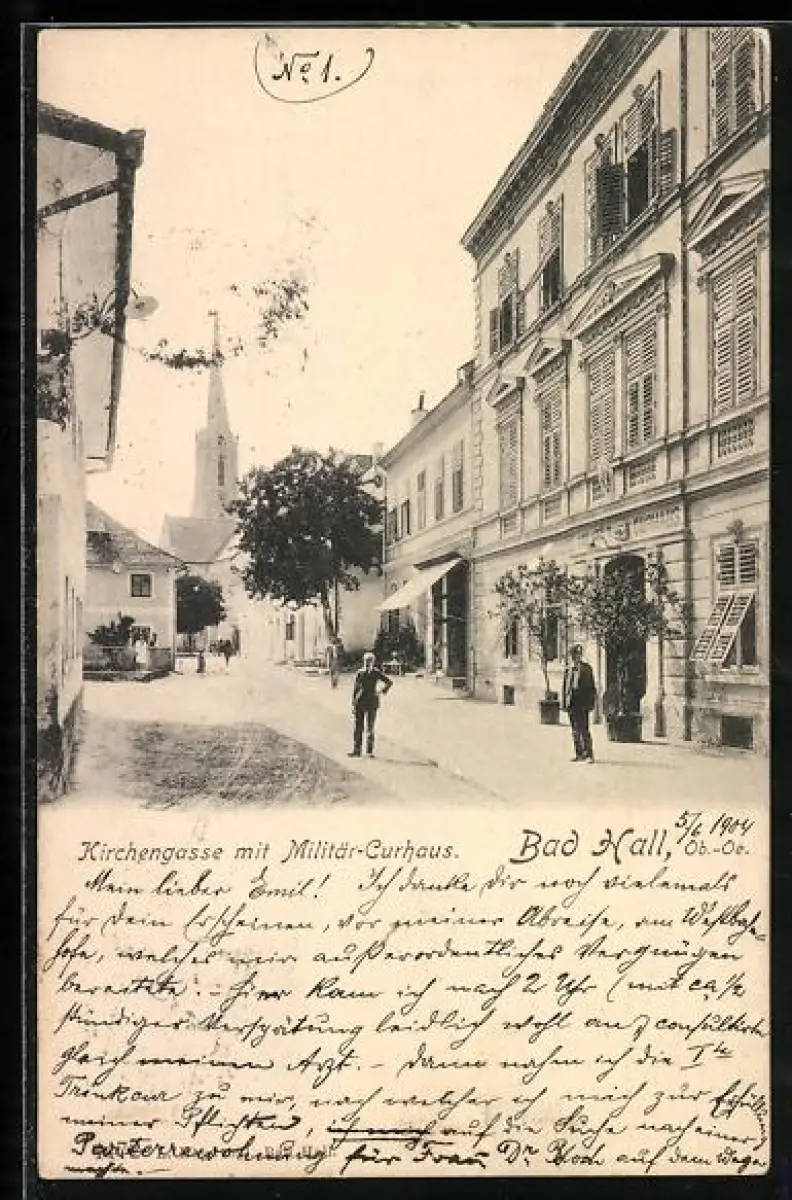 No 1.
5/6 1904
Kirchengasse mit Militär-Curhaus. Bad Hall, Ob.-Oe.
Mein lieber Emil! Ich danke Dir noch vielemals
für Dein Erscheinen, vor meiner Abreise, am Westbahn-
hofe, welches mir außerordentliches Vergnügen
bereitete. - Hier kam ich nach 2 Uhr (mit ca 1/2
stündiger Verspätung leidlich wohl an & consultirte
gleich meinen Arzt. - Dann nahm ich die Ite
Trinkcur zu mir, nach welcher ich mich zur Erfüllung
meiner Pflichten, ich mich auf die Suche nach einer
Parterrewohnung für Frau Dr Bloch auf dem Wege
machte. -